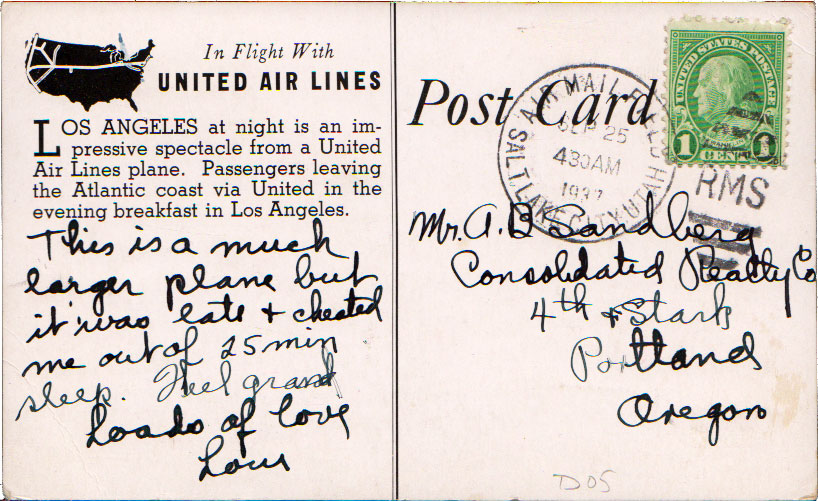 In Flight With
UNITED AIR LINES
LOS ANGELES at night is an im-
pressive spectacle from a United
Air Lines plane. Passengers leaving
the Atlantic coast via United in the
evening breakfast in Los Angeles.
This is a much
larger plane but
it was late & cheated
me out of 25 min
sleep. Feel grand
Loads of love
Lou
Post Card
AIR MAIL FIELD
SEP 25
430AM
1937
SALT LAKE CITY, UTAH
UNITED STATES POSTAGE
FRANKLIN
1 CENT 1
RMS
Mr. A. B Sandberg
Consolidated Realty Co
4th & Stark
Portland
Oregon
D05